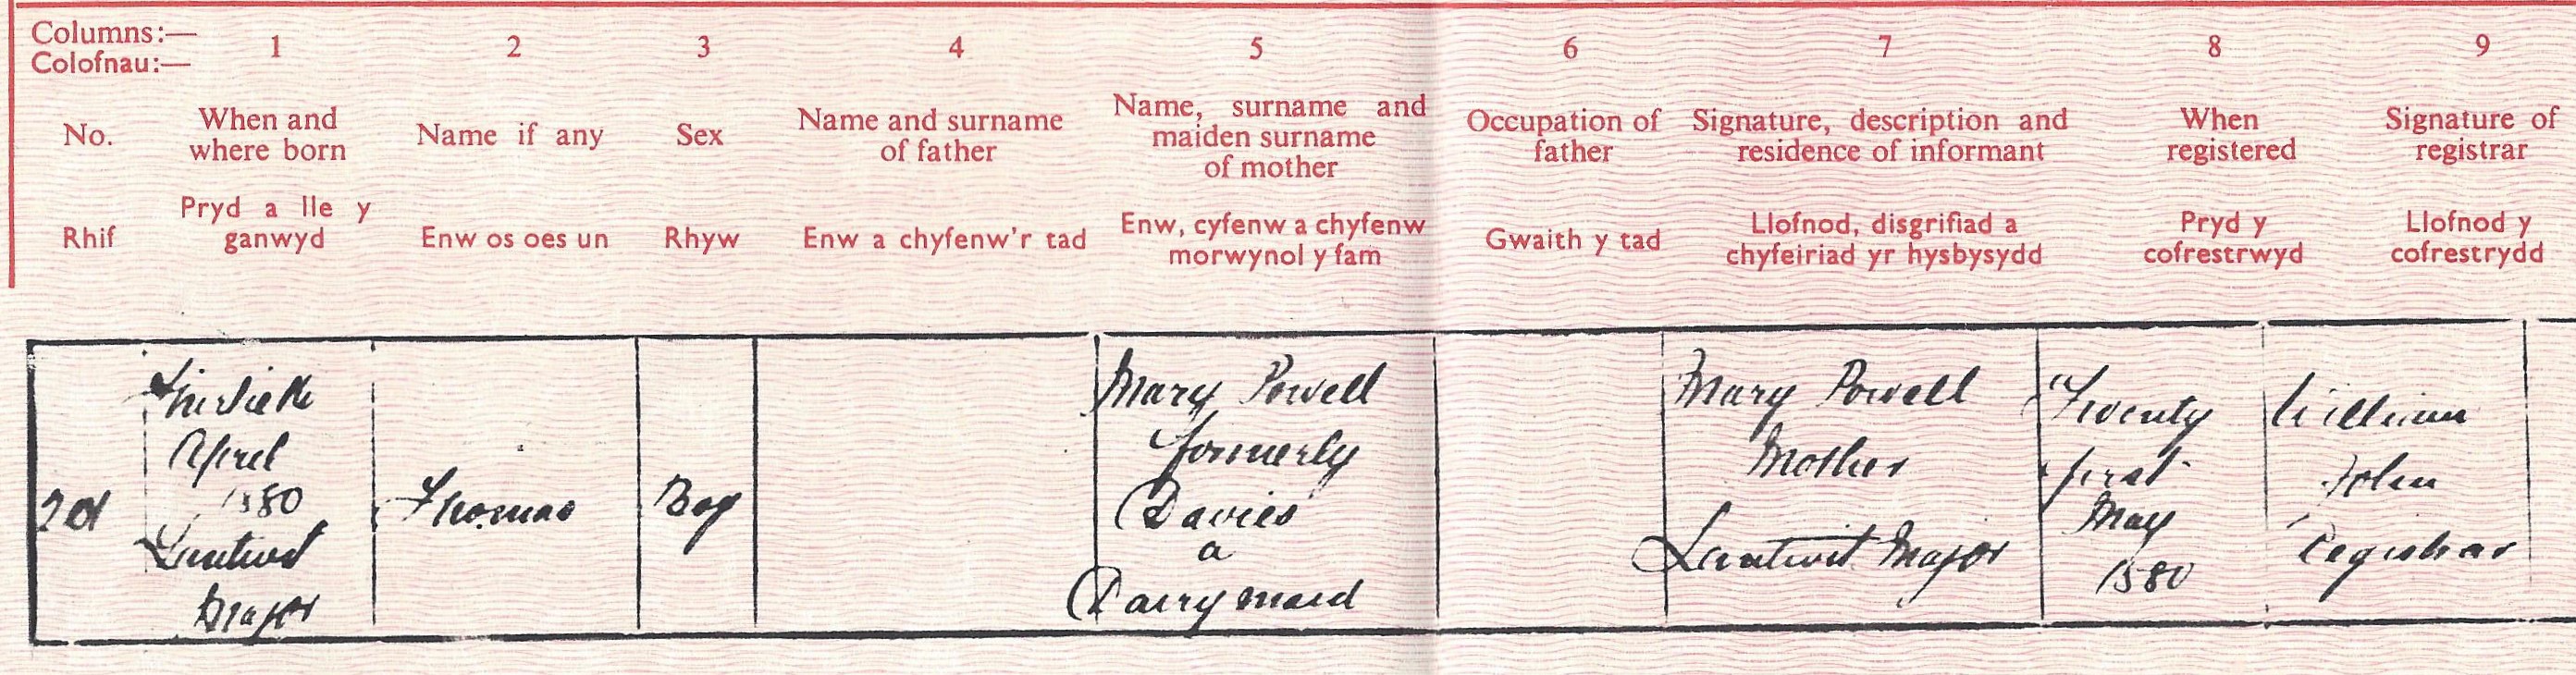 Columns:— 1 2 3 4 5 6 7 8 9
Colofnau:—
No.
When and
where born
Name if any
Sex
Name and surname
of father
Name, surname and
maiden surname
of mother
Occupation of
father
Signature, description and
residence of informant
When
registered
Signature of
registrar
Rhif
Pryd a lle y
ganwyd
Enw os oes un
Rhyw
Enw a chyfenw'r tad
Enw, cyfenw a chyfenw
morwynol y fam
Gwaith y tad
Llofnod, disgrifiad a
chyfeiriad yr hysbysydd
Pryd y
cofrestrwyd
Llofnod y
cofrestrydd
April
1880
Lantwit
Major
Thomas
Boy
Mary Powell
formerly
Davies
a
Dairymaid
Mary Powell
Mother
Lantwit Major
Twenty
first
May
1880
William
John
Registrar